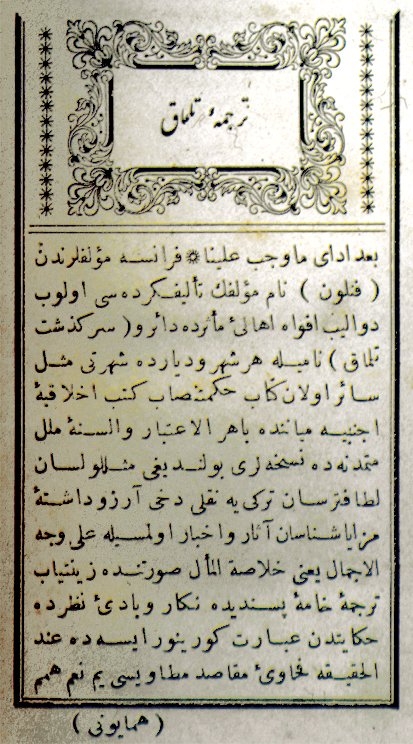 ترجمهٔ تلماق
بعد ادای ما وجب علینا ❊ فرانسه مؤلفلرندن
( فنلون ) نام مؤلفك تألیفکرده سی اولوب
دوالیب افواه اهالیٔ مأثرده دائر و ( سرکذشت
تلماق ) نامیله هر شهر و دیارده شهرتی مثل
سائر اولان کتاب حکمتنصاب کتب اخلاقیهٔ
اجنبیه میاننده باهر الاعتبار والسنهٔ ملل
متمدنه ده نسخه لری بولندیغی مثللو لسان
لطافترسان ترکی یه نقلی دخی آرزو داشتهٔ
مزایاشناسان آثار و اخبار اولمسیله علی وجه
الاجمال یعنی خلاصة المأل صورتنده زینتیاب
ترجمهٔ خامهٔ پسندیده نکار و بادیٔ نظرده
حکایتدن عبارت کورینور ایسه ده عند
الحقیقه فحاویٔ مقاصد مطاویسی یم نعم همم
( همایونی )